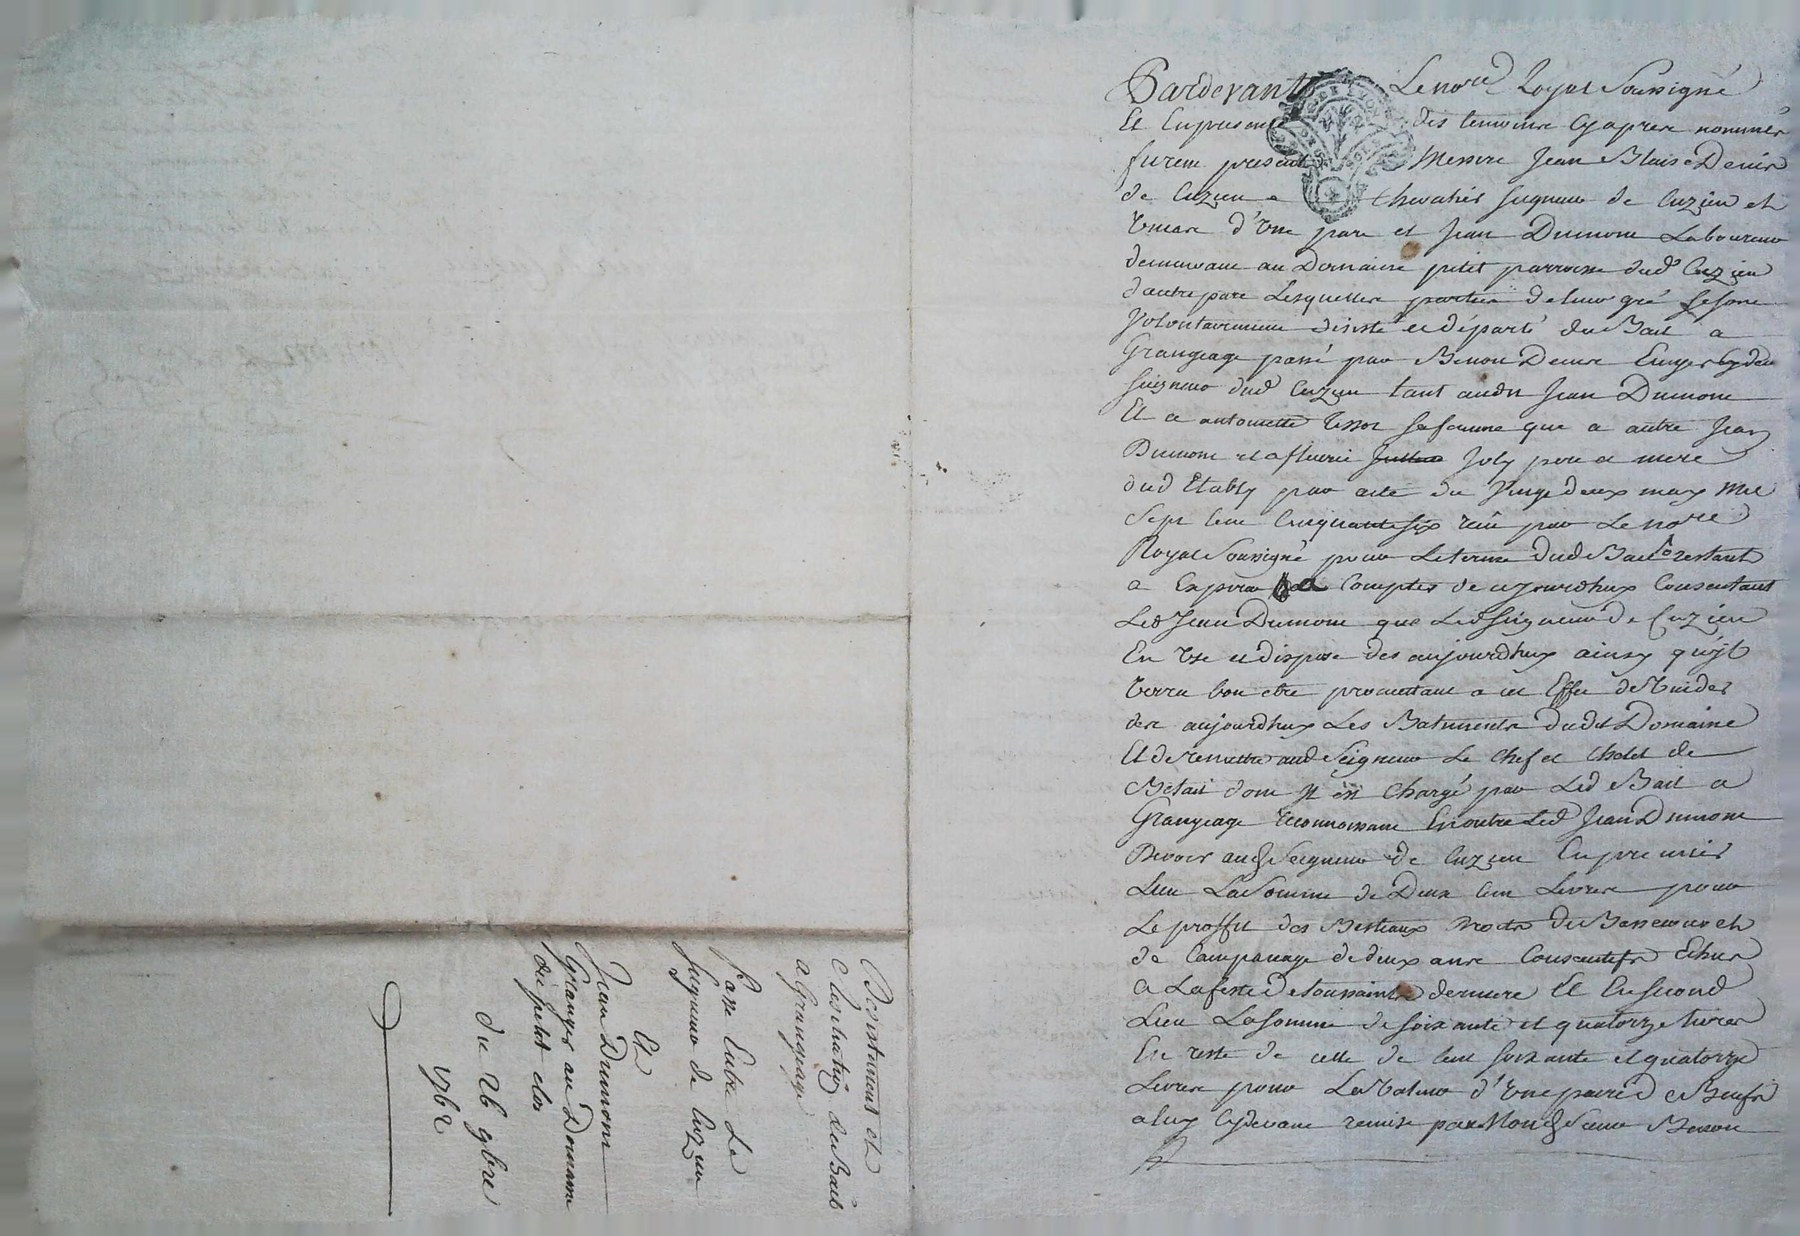 Pardevant Le no.re Royal Soussigné
Et En presence des temoins Cy apres nommés
furent presents Messire Jean Blaise Denis
de Cuzieu Chevalier seigneur de Cuzieu et
d'Une part et Jean Dumont Laboureur
demeurant au Domaine petit parroisse dud. Cuzieu
d'autre part Lesquelles parties de leur gré se sont
Volontairement desisté et départi du Bail a
Grangeage passé par Benoit Denis Ecuyer
seigneur dud Cuzieu tant audit Jean Dumont
Et a antoinette sa femme que a autre Jean
Dumont et a fleurie Joly pere et mere
dud Etably par acte du Vingt deux may Mil
Sept Cent Cinquante six reçu par Le no.re
Royal Soussigné pour Le terme dud Bail restant
a Expirer a Compter de ce jourdhuy Consentant
Led Jean Dumont que Led Seigneur de Cuzieu
En Use et dispose des aujourdhuy ainsy qu'yl
Verra bon etre promettant a cet Effet de Vuider
des aujourdhuy Les Batiments dudit Domaine
Et de remettre aud Seigneur Le Chef et Chetel de
Betail dont Il est Chargé par Led Bail a
Grangeage reconnoissant En outre Led Jean Dumont
Devoir aud Seigneur de Cuzieu En premier
Lieu La Somme de Deux Cent Livres pour
Le proffit des Bestiaux
de de deux ans Consecutifs Echus
a La feste de toussaints derniere Et En second
Lieu La Somme de soixante et quatorze Livres
En reste de celle de Cent soixante et quatorze
Livres pour La Valeur d'Une paire de Bœufs
a luy Cy devant remise par Mond Sieur Benoit
Desistement et
du Bail
a Grangeage
Passé Entre Le
Seigneur de Cuzieu
Et
Jean Dumont
Granger au Domaine
du petit clos
du 26 9bre
1762